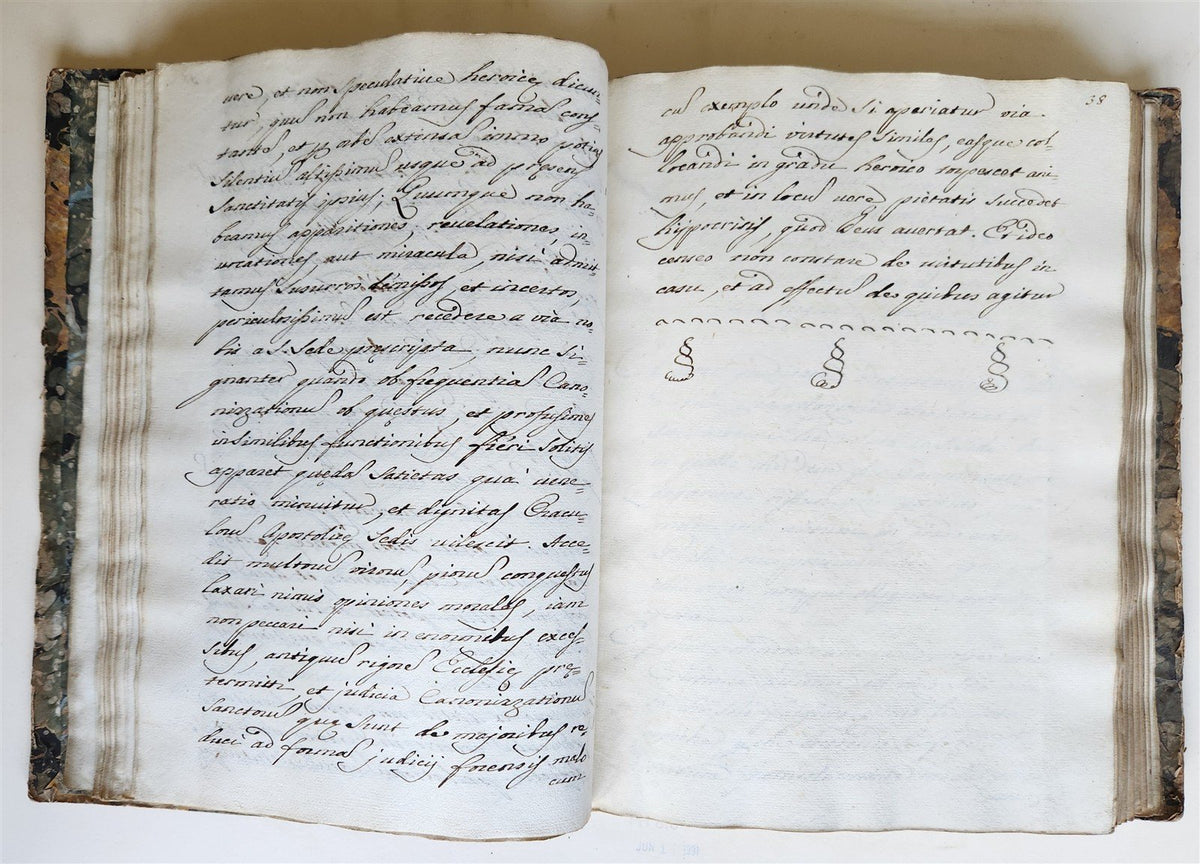 vere, et non speculative heroicę dicun=
tur, qui non habeamus famã cons=
tante, et
silentiũ altissimũ usque ad pręsens
Sanctitatis ipsius, Quumque non ha=
beamus apparitiones, revelationes, in=
vocationes, aut miracula, nisi admit
tamus susurros demissos, et incertos,
periculosissimũ est recedere a via no=
bis a S. Sede prescripta, nunc si=
gnanter quando ob frequentiã Cano=
nizationũ ob questus, et profusiones
in similibus functionibus fieri solitis
apparet quędã satietas quà vene=
ratio minuitur, et dignitas Oracu=
lorũ Apostolicę Sedis vilescit. Acce=
dit multorũ virorũ piorũ conquestus
laxari nimis opiniones morales, iam
non peccari nisi in enormibus exces=
sibus, antiquũ rigorẽ Ecclesię prę=
termitti, et judicia Canonizzationũ
Sanctorũ quę sunt de majoribus re=
duci ad formã judicij forensis malo
cum
38
cũ exemplo unde si aperiatur via
approbandi virtutes similes, easque col=
locandi in gradu heroico tepescet ani=
mus, et in locũ verę pietatis succedet
hypocrisis, quod Deus avertat. Et ideo
censeo non constare de virtutibus in
casu, et ad effectũ de quibus agitur